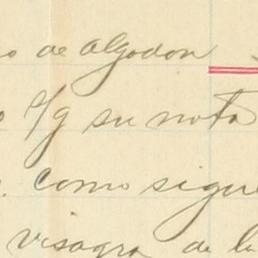 de algodon
o/g su nota
como sigue
visagra de la